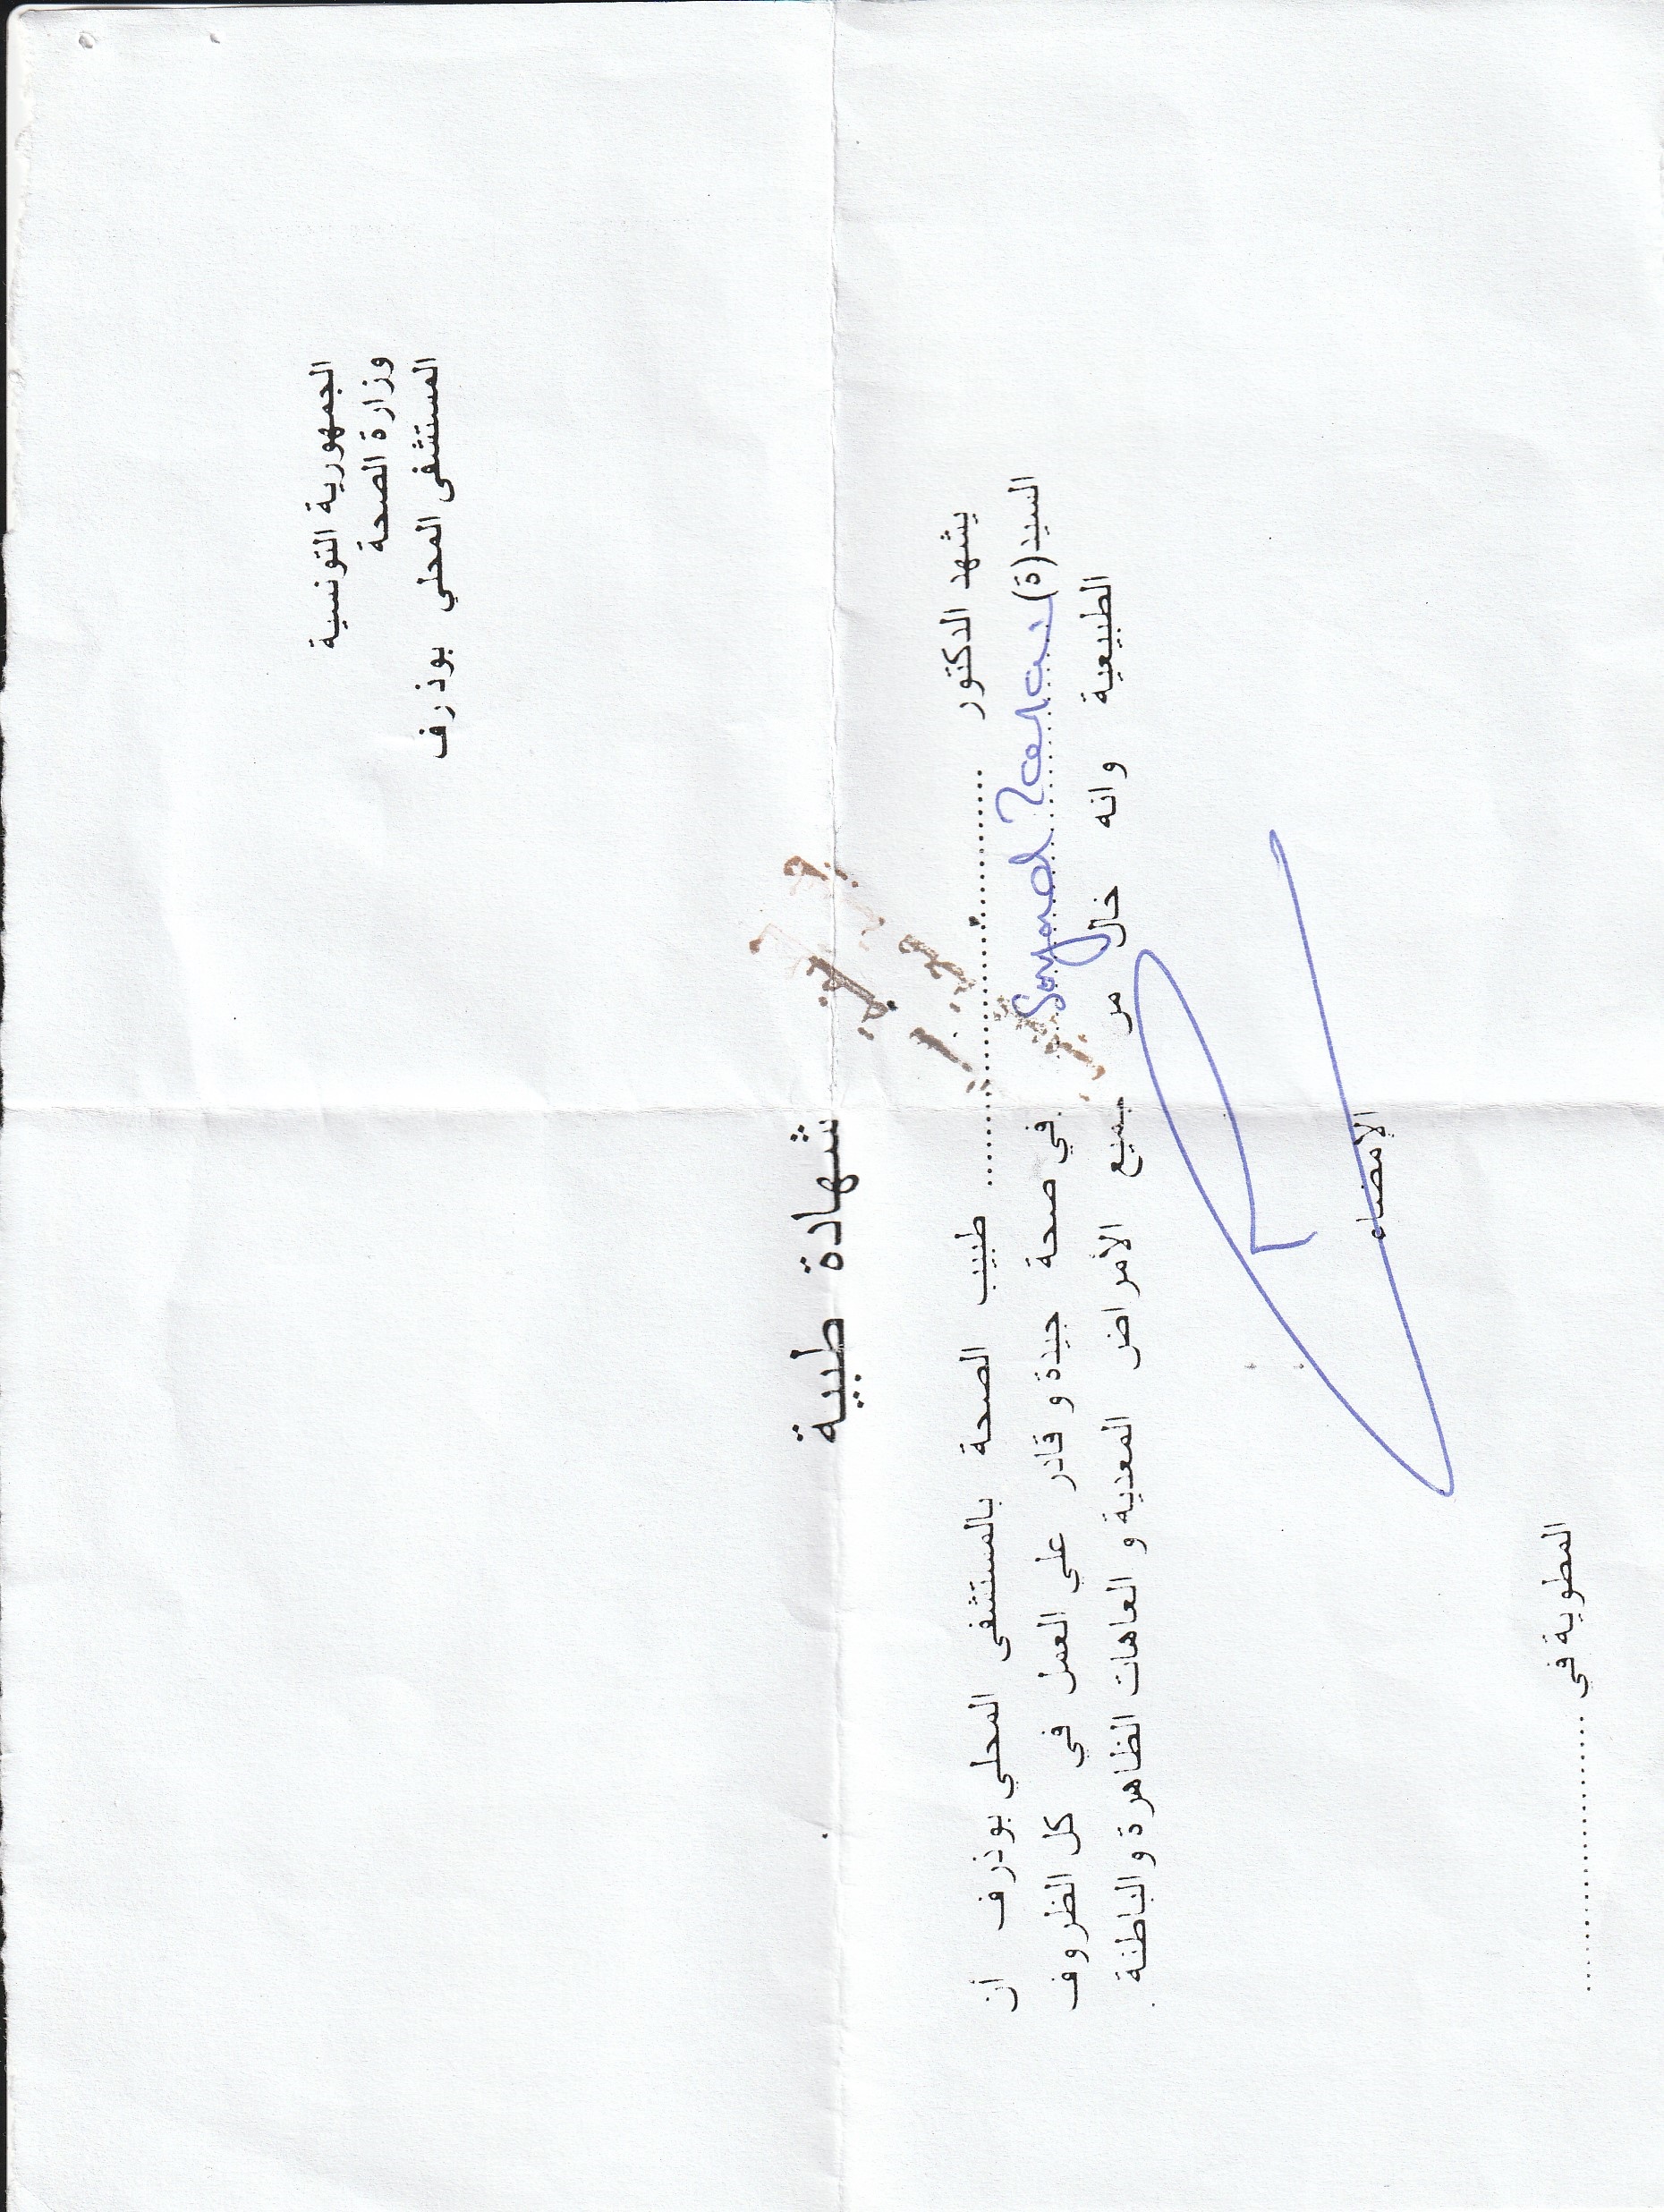 الجمهورية التونسية
وزارة الصحة
المستشفى المحلي بوذرف
شهادة طبية
يشهد الدكتور .................................... طبيب الصحة بالمستشفى المحلي بوذرف أن
السيد(ة) في صحة جيدة و قادر علي العمل في كل الظروف
الطبيعية وانه خال من جميع الأمراض المعدية و العاهات الظاهرة والباطنة.
الإمضاء
المطوية في ........................